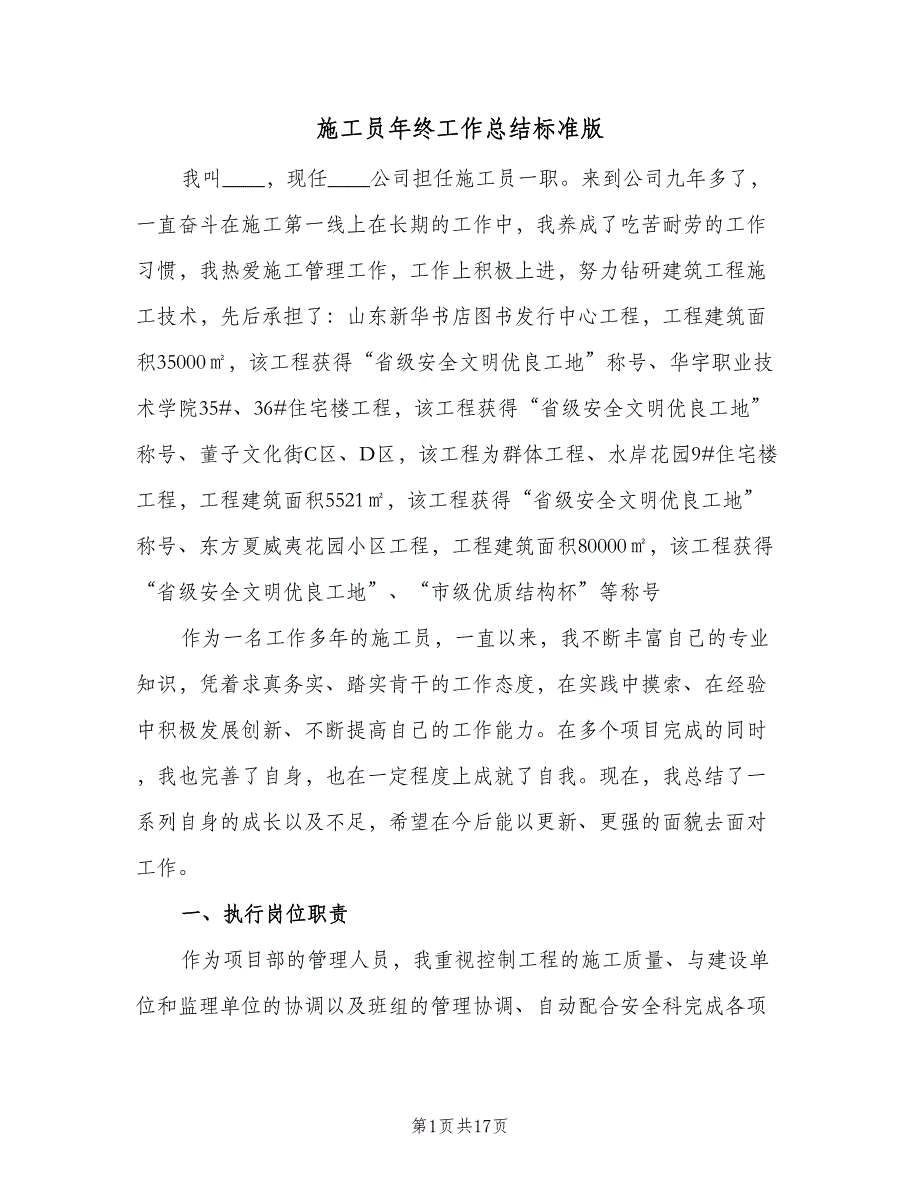 施工员年终工作总结标准版
我叫____，现任____公司担任施工员一职。来到公司九年多了，
一直奋斗在施工第一线上在长期的工作中，我养成了吃苦耐劳的工作
习惯，我热爱施工管理工作，工作上积极上进，努力钻研建筑工程施
工技术，先后承担了：山东新华书店图书发行中心工程，工程建筑面
积35000㎡，该工程获得“省级安全文明优良工地”称号、华宇职业技
术学院35#、36#住宅楼工程，该工程获得“省级安全文明优良工地”
称号、董子文化街C区、D区，该工程为群体工程、水岸花园9#住宅楼
工程，工程建筑面积5521㎡，该工程获得“省级安全文明优良工地”
称号、东方夏威夷花园小区工程，工程建筑面积80000㎡，该工程获得
“省级安全文明优良工地”、“市级优质结构杯”等称号
作为一名工作多年的施工员，一直以来，我不断丰富自己的专业
知识，凭着求真务实、踏实肯干的工作态度，在实践中摸索、在经验
中积极发展创新、不断提高自己的工作能力。在多个项目完成的同时
，我也完善了自身，也在一定程度上成就了自我。现在，我总结了一
系列自身的成长以及不足，希望在今后能以更新、更强的面貌去面对
工作。
一、执行岗位职责
作为项目部的管理人员，我重视控制工程的施工质量、与建设单
位和监理单位的协调以及班组的管理协调、自动配合安全科完成各项
第1页共17页